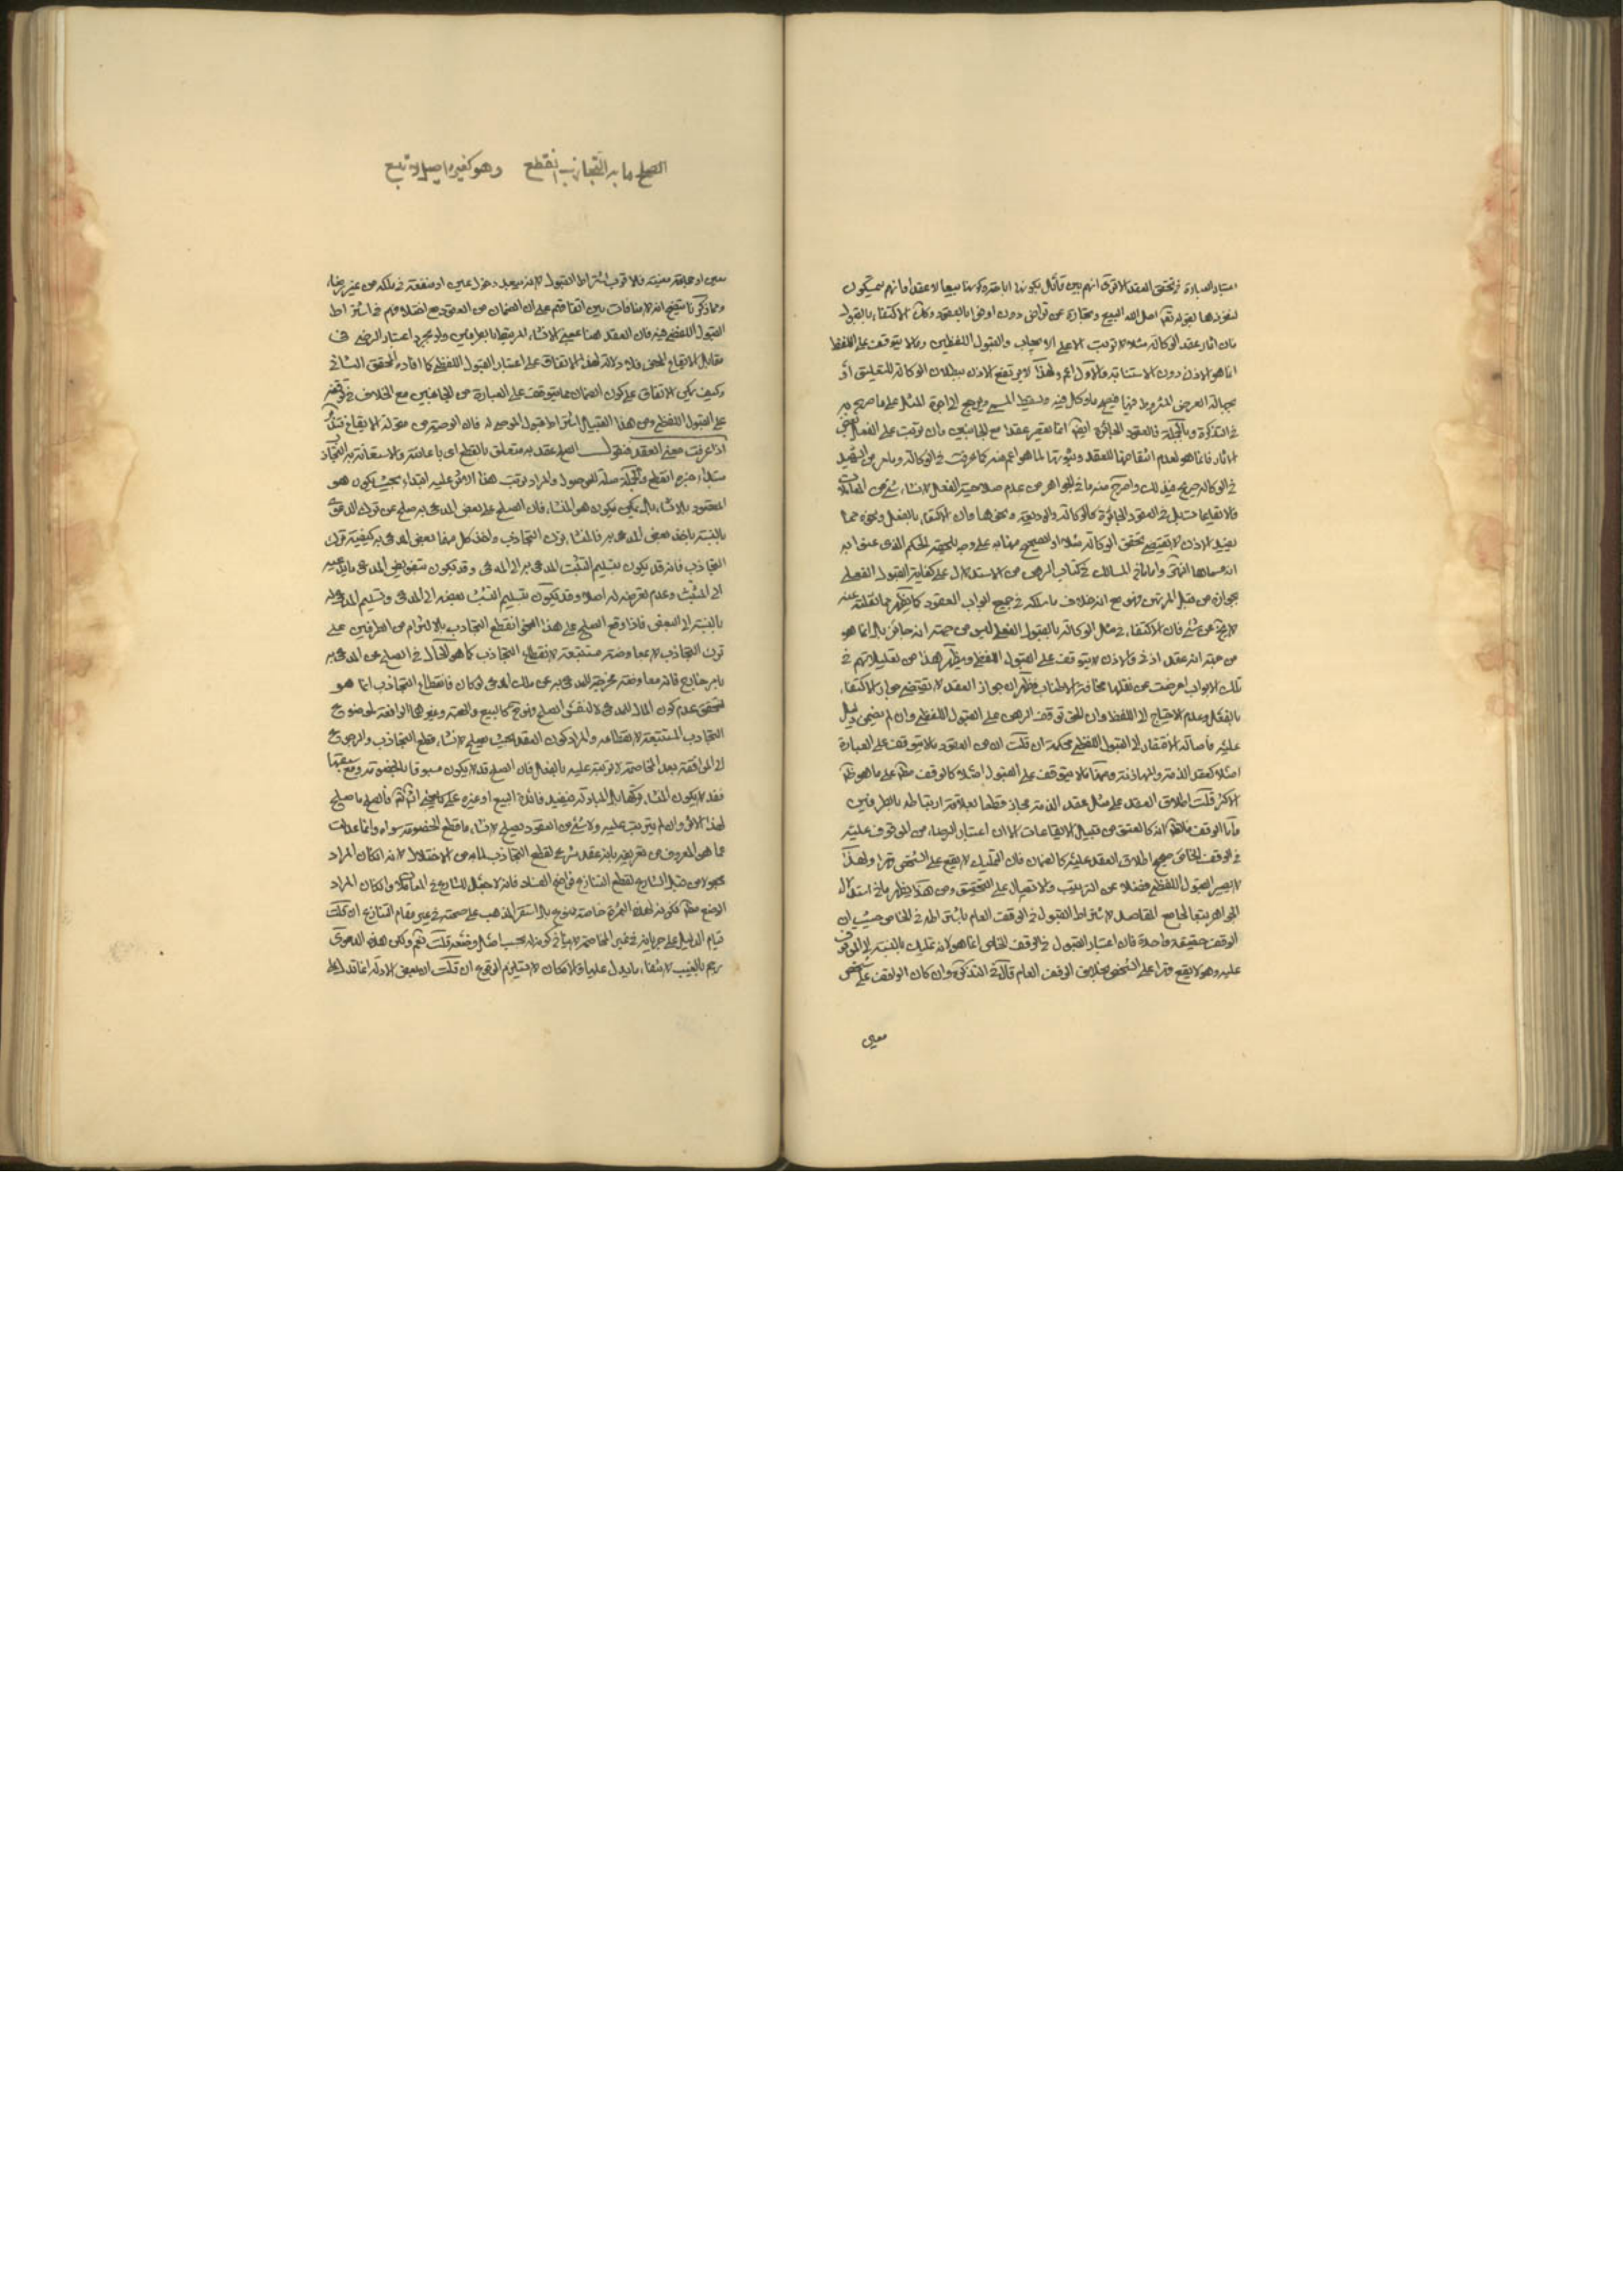 اعتبار العبارة في تحقق العقد الا ترى انهم بين قائل بكونها اباحة وكونها بيعا لا عقدا وانهم يتمسكون
لنفوذها بقوله تعالى احل الله البيع وتجارة عن تراض دون اوفوا بالعقود وكك الاكتفاء بالقبول
فان اثار عقد الوكالة مثلا لا تترتب الا على الايجاب والقبول اللفظيين وما لا يتوقف على اللفظ
انما هو الاذن دون الاستنابة والاول اعم ولهذا لا يرتفع الاذن ببطلان الوكالة للتعليق أو
بجهالة العوض المشروط فيها فيصح ما وكل فيه ويسقط المسمى ويرجع الى اجرة المثل على ما صرح به
في التذكرة وبالجملة فالعقود الجائزة ايضا انما تعتبر عقدا مع الجانبين فان ترتب على الفعل بعض
الاثار فانما هو لعدم اختصاصها بالعقد وثبوتها لما هو اعم منه كما عرفت في الوكالة
في الوكالة صريح في ذلك واصرح منه ما في الجواهر من عدم صلاحية الفعل لانشاء شئ من
بل في العقود الجائزة كالوكالة والوديعة ونحوها وان اكتفاء بالفعل ونحوه مما
يفيد الاذن لا يقتضي تحقق الوكالة مثلا
انه مسماها انتهى واما ما في المسالك في كتاب الرهن من الاستدلال على كفاية القبول الفعلي
بجوازه من قبل المرتهن فهو مع انه خلاف ما سلكه في جميع ابواب العقود كما يظهر مما نقلته عنه
لا يخ عن شئ فان الاكتفاء في مثل الوكالة بالقبول الفعلي ليس من جهة انه جائز بل انما هو
من جهة انه عقد اذني والاذن لا يتوقف على القبول اللفظي ويظهر هذا من تعليلاتهم في
تلك الابواب اعرضت عن نقلها مخافة الاطناب فظهر ان جواز العقد لا يقتضي جواز الاكتفاء
بالفعل وعدم الاحتياج الى اللفظ وان الحق توقف الرهن على القبول اللفظي وان لم يقم دليل
عليه فاصالة الافتقار الى القبول اللفظي محكمة ان قلت ان من العقود ما لا يتوقف على العبارة
اصلا كعقد الذمة والمهادنة ومنها ما لا يتوقف على القبول اصلا كالوقف مطلقا على ما هو ظاهر
الاكثر قلت اطلاق العقد على مثل عقد الذمة مجاز قطعا لعلاقة ارتباطه بالطرفين
واما الوقف فالظاهر انه كالعتق من قبيل الايقاعات الا ان اعتبار الرضاء من الموقوف عليه
في الوقف الخاص صحح اطلاق العقد عليه كالضمان فان التمليك لا يقع على الشخص قهرا ولهذا
لا يعتبر القبول اللفظي فضلا عن الترتيب والاتصال على التحقيق ومن هنا يظهر ما في استدلال
الجواهر تبعا لجامع المقاصد لاشتراط القبول في الوقف العام باشتراطه في الخاص حيث ان
الوقف حقيقة واحدة فان اعتبار القبول في الوقف الخاص انما هو لانه تمليك بالنسبة الى الموقوف
عليه وهو لا يقع قهرا على الشخص بخلاف الوقف العام قال في التذكرة وان كان الوقف على شخص
معين
الصلح ما به التجاذب انقطع وهو كغيره اصيل لا تبع
معين او جماعة معينة فالاقرب اشتراط القبول لانه يبعد دخول عين او منفعة في ملكه من غير رضاء
ومما ذكرنا يتضح انه لا منافات بين اتفاقهم على ان الضمان من العقود مع اختلافهم في اشتراط
القبول اللفظي فيه فان العقد هنا بمعنى الانشاء المرتبط بالطرفين ولو بمجرد اعتبار الرضى في
مقابل الايقاع المحض فلا دلالة لهذا الاتفاق على اعتبار القبول اللفظي كما افاده المحقق الثاني
وكيف يمكن الاتفاق على كون الضمان مما يتوقف على العبارة من الجانبين مع الخلاف في توقفه
على القبول اللفظي ومن هذا القبيل اشتراط قبول الموصى له فان الوصية من مقولة الايقاع
اذا عرفت معنى العقد فنقول الصلح عقد به متعلق بانقطع اى باعانته والاستعانة به التجاذب
مبتداء خبره انقطع والجملة صلة للموصول والمراد ترتب هذا الاثر عليه ابتداء بحيث يكون هو
المقصود بالانشاء بل يمكن ان يكون هو المنشاء فان الصلح على بعض المدعى به صلح عن ترك الدعوى
بالنسبة باخذ بعض المدعى به فالمنشاء ترك التجاذب واخذ كل منهما بعض المدعى به كيفية ترك
التجاذب فانه قد يكون بتسليم المثبت المدعى به الى المدعى وقد يكون
الى المثبت وعدم تعرضه له اصلا وقد يكون بتسليم المثبت بعضه الى المدعى وتسليم المدعى له
بالنسبة الى البعض فاذا وقع الصلح على هذا النحو انقطع التجاذب بالالتزام من الطرفين على
ترك التجاذب لا بمعاوضة مستتبعة لانقطاع التجاذب كما هو الحال في الصلح عن المدعى به
بامر خارج فانه معاوضة مخرجة للمدعى به عن ملك المدعى لو كان فانقطاع التجاذب انما هو
لتحقق عدم كون المال للمدعى لا لنفس الصلح فهو ح كالبيع والهبة وغيرهما الرافعة لموضوع
التجاذب المستتبعة لانقطاعه والمراد كون العقد بحيث يصلح لانشاء قطع التجاذب والرجوع
الى الموافقة بعد المخاصمة لا ترتبه عليه بالفعل فان الصلح قد لا يكون مسبوقا بالخصومة ومع سبقها
فقد لا يكون المنشاء تركها بل المبادلة فيفيد فائدة البيع او غيره على ما يجئ انش تع فالصلح ما صلح
لهذا الاثر وان لم يترتب عليه ولا شئ من العقود يصلح لانشاء ما قطع الخصومة سواه وانما عدلت
عما هو المعروف من تعريفه بانه عقد شرع لقطع التجاذب لما به من الاختلال لانه ان كان المراد
مجعولا من قبل الشارع لقطع التنازع فواضح الفساد فانه لا جعل للشارع في المعاملات وان كان المراد
الوضع مطلقا فكونه لهذه الثمرة خاصة ممنوع بل استقر المذهب على صحته في غير مقام التنازع ان قلت
قيام الدليل على جريانه في غير المخاصمة لا ينافي كونه لها بحسب اصل وضعه قلت نعم ولكن هذه الدعوى
رجم بالغيب لانتفاء ما يدل عليها والامكان لا يستلزم الوقوع ان قلت ان بعض الادلة انما تدل على